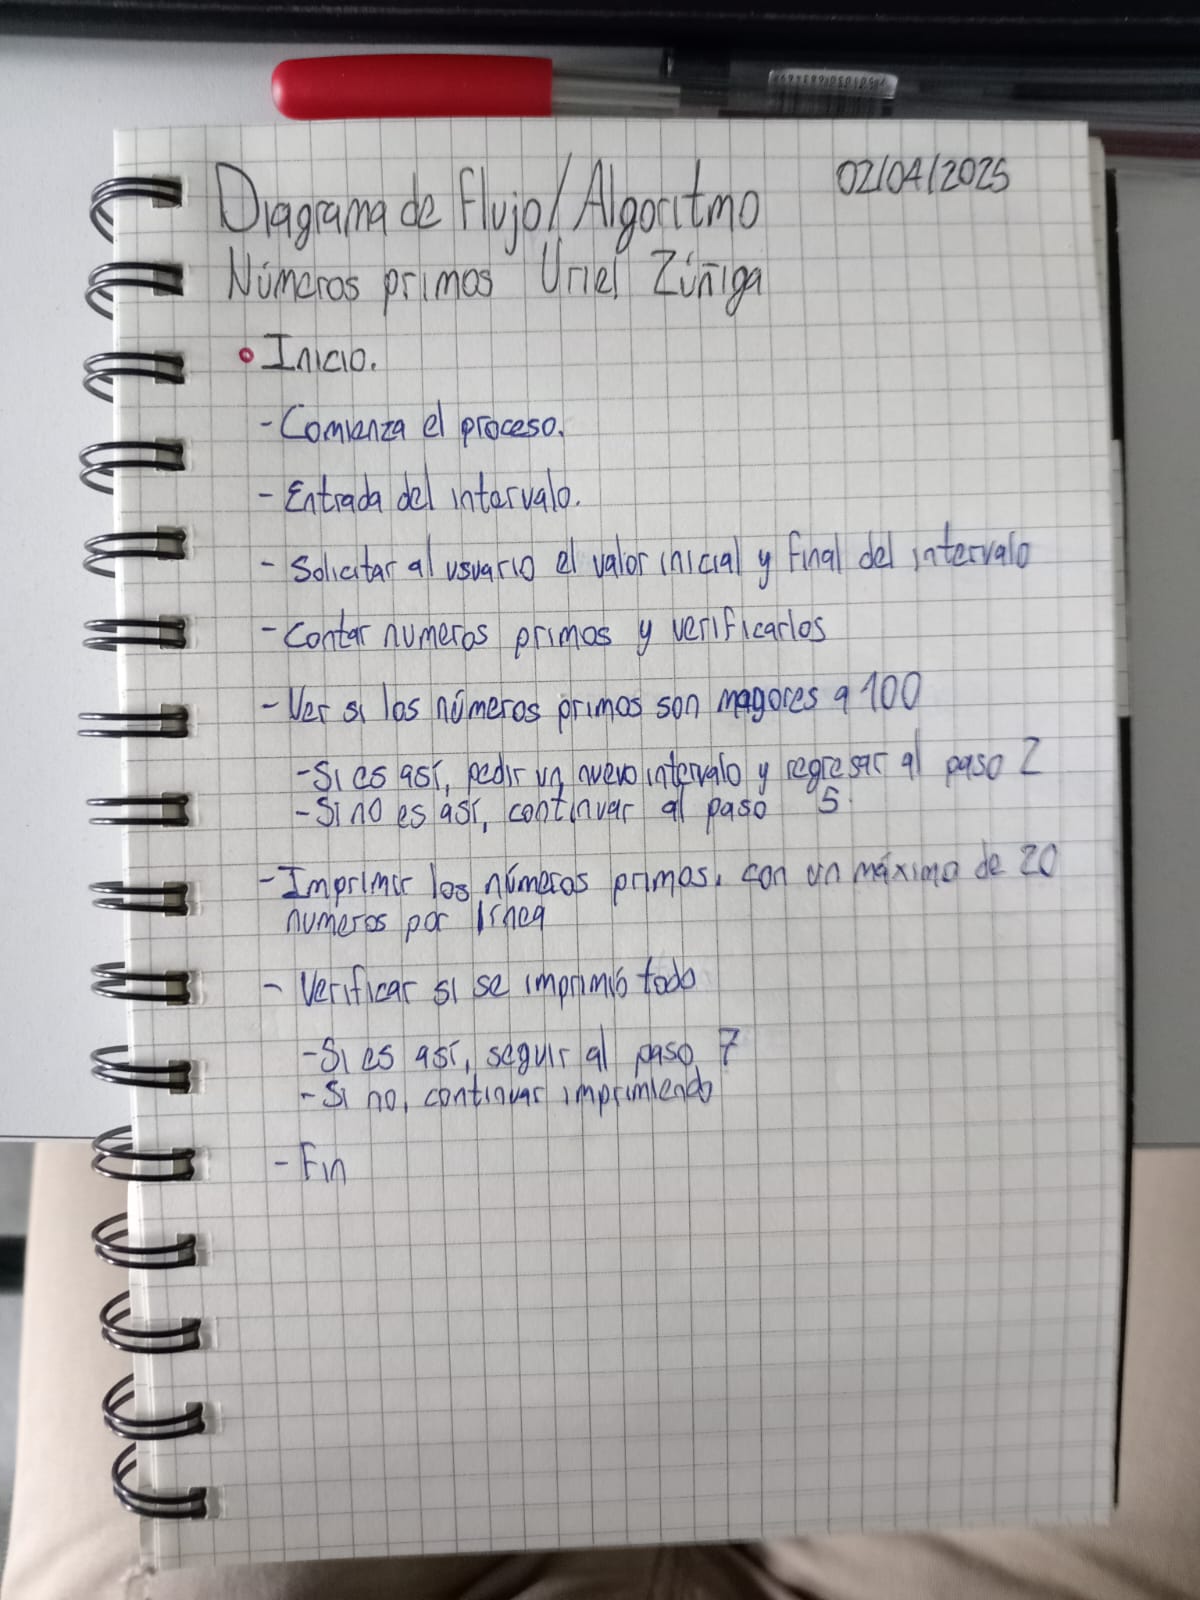 Diagrama de Flujo/Algoritmo 02/04/2025
Números primos Uriel Zúñiga
Inicio.
-Comienza el proceso.
-Entrada del intervalo.
-Solicitar al usuario el valor inicial y final del intervalo
-Contar numeros primos y verificarlos
-Ver si los números primos son magores a 100
-Si es así, pedir un nuevo intervalo y regresar al paso 2
-Si no es así, continuar al paso 5
-Imprimir los números primos, con un máximo de 20
numeros por línea
- Verificar si se imprimió todo
-Si es así, seguir al paso 7
-Si no, continuar imprimiendo
-Fin